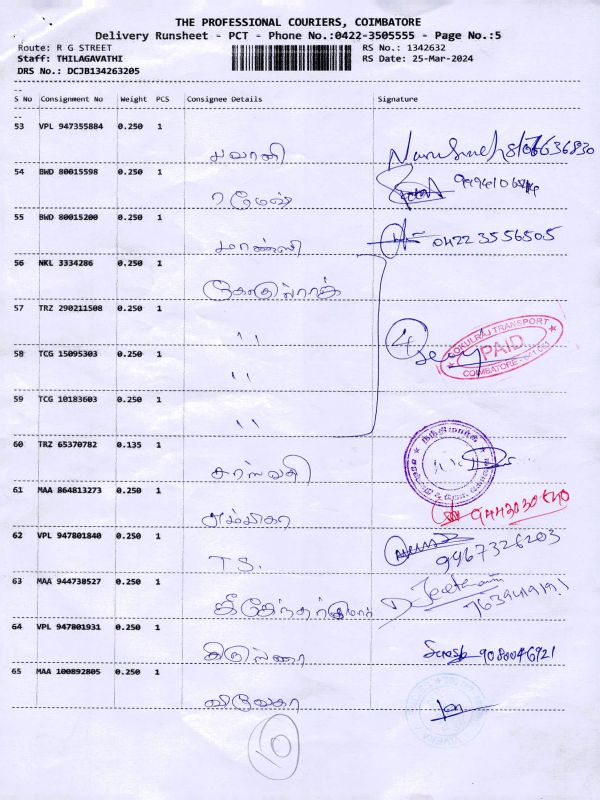 THE PROFESSIONAL COURIERS, COIMBATORE
Delivery Runsheet - PCT - Phone No.:0422-3505555 - Page No.:5
Route: R G STREET
RS No.: 1342632
Staff: THILAGAVATHI
RS Date: 25-Mar-2024
DRS No.: DCJB134263205
S No Consignment No Weight PCS Consignee Details Signature
53 VPL 947355884 0.250 1
பவானி
54 BWD 80015598 0.250 1
ரமேஷ்
55 BWD 80015200 0.250 1
0422 3556505
56 NKL 3334286 0.250 1
கோகுல்ராஜ்
57 TRZ 290211508 0.250 1
''
58 TCG 15095303 0.250 1
'' 4
OKULRAJ TRANSPORT
PAID
COIMBATORE
59 TCG 10183603 0.250 1
''
60 TRZ 65370782 0.135 1
சரஸ்வதி
61 MAA 864813273 0.250 1
அம்பிகா
62 VPL 947801840 0.250 1
T.S. 9967326203
63 MAA 944738527 0.250 1
64 VPL 947801931 0.250 1
கிருஷ்ணா Suresh 9080046921
65 MAA 100892805 0.250 1
விவேகா
10